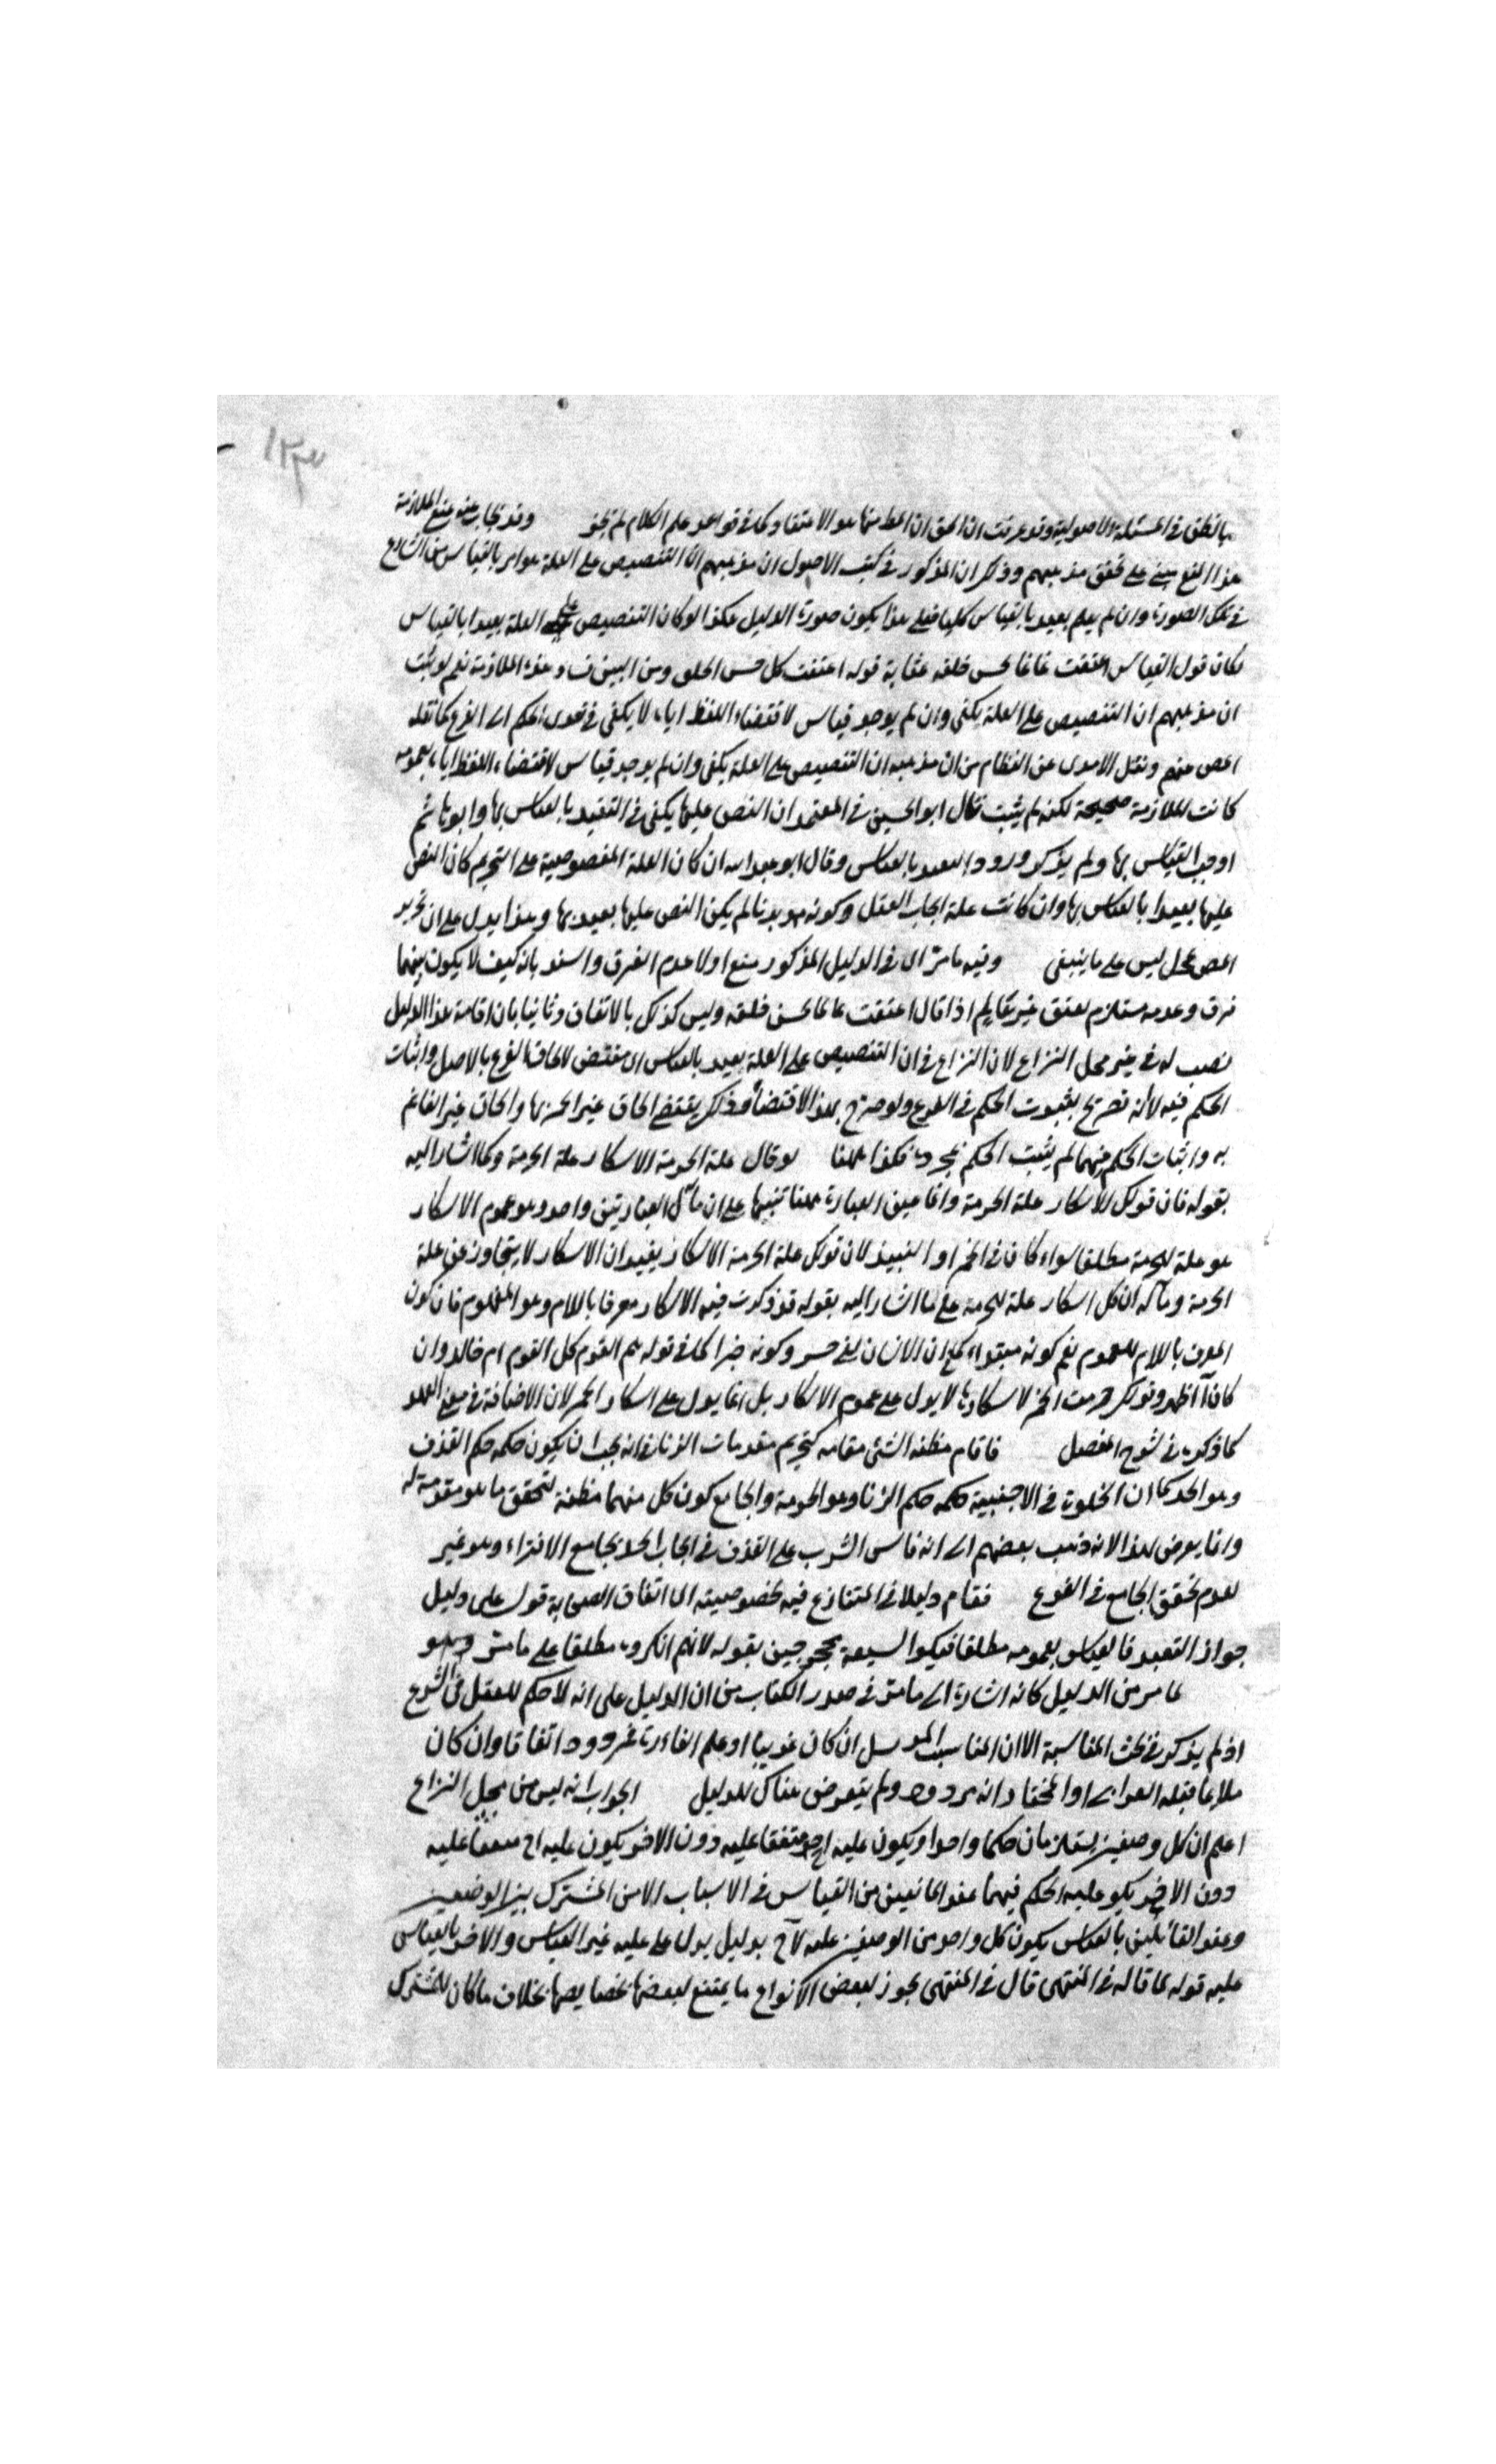 ١٢٣
بالظن في المسئلة الاصولية وقد عرفت ان الحق ان المط منها هو الاعتقاد كما في قواعد علم الكلام لم يجز وقد يجاب عنه بمنع الملازمة
هذا المنع مبني على تحقق مذهبهم وذكر ان المذكور في كتب الاصول ان مذهبهم ان التنصيص على العلة هو امر بالقياس من الشارع
في تلك الصورة وان لم يعلم تعبد بالقياس كليا فعلى هذا يكون صورة الدليل هكذا لو كان التنصيص على العلة تعبدا بالقياس
لكان قول القياس اعتقت غانما لحسن خلقه بمثابة قوله اعتقت كل حسن الخلق ومن البين هذه الملازمة نعم لو ثبت
ان مذهبهم ان التنصيص على العلة يكفى وان لم يوجد قياس لاقتضاء اللفظ اياه لا يكفى في تعدى الحكم الى الفرع كما نقله
المص عنهم ونقل الامدى عن النظام من ان مذهبه ان التنصيص على العلة يكفى وان لم يوجد قياس لاقتضاء اللفظ اياه بعمومه
كانت الملازمة صحيحة لكنه لم يثبت قال ابو الحسين في المعتمد ان النص عليها يكفى في التعبد بالقياس بها وابو هاشم
اوجب القياس بها ولم يذكر ورود التعبد بالقياس وقال ابو عبد الله ان كان العلة المنصوصية على التحريم كان النص
عليها تعبدا بالقياس بها وان كانت علة ايجاب الفعل وكونه مندوبا لم يكن النص عليها تعبد بها وهذا يدل على ان تحرير
المص محل ليس على ما ينبغى وفيه ما مر اى في الدليل المذكور منع اولا عدم الفرق واسند بانه كيف لا يكون بينهما
فرق وعدمه مستلزم لعتق غير غانم اذا قال اعتقت غانما لحسن خلقه وليس كذلك بالاتفاق وثانيا بان اقامة هذا الدليل
نصب له في غير محل النزاع لان النزاع في ان التنصيص على العلة تعبد بالقياس اى مقتض لالحاق الفرع بالاصل واثبات
الحكم فيه لا انه تصريح بثبوت الحكم في الفرع ولو صرح بهذا الاقتضاء وذكر يقتضى الحاق غير الخمر بها والحاق غير الغانم
به واثبات الحكم فيهما لم يثبت الحكم بمجرده فكذا ههنا لو قال علة الحرمة الاسكار علة الحرمة وكما اشار اليه
بقوله فان قولك الاسكار علة الحرمة وانما عين العبارة ههنا تنبيها على ان مآل العبارتين واحد وهو عموم الاسكار
هو علة للحرمة مطلقا سواء كان في الخمر او النبيذ لان قولك علة الحرمة الاسكار يفيد ان الاسكار لا يتجاوز عن علة
الحرمة ومآله ان كل اسكار علة للحرمة على ما اشار اليه بقوله قد ذكرت فيه الاسكار معرفا باللام وهو المفهوم فان كون
المعرف باللام للعموم نعم كونه مبتداء كما ان الانسان لفي خسر وكونه خبرا كما في قوله هم القوم كل القوم ام خالد وان
كان اظهر وقولك حرمت الخمر لاسكارها لا يدل على عموم الاسكار بل انما يدل على اسكار الخمر لان الاضافة في معنى العهد
كما ذكره في شرح المفصل فاقام مظنة الشئ مقامه كتحريم مقدمات الزنا فانه يجب ان يكون حكمه حكم القذف
وهو الحد كما ان الخلوة في الاجنبية حكمه حكم الزنا وهو الحرمة والجامع كون كل منهما مظنة لتحقق ما هو مقدمة له
وانما يعرض لهذا الانه ذهب بعضهم الى انه قاس الشرب على القذف في ايجاب الحد بجامع الافتراء وهو غير
لعدم تحقق الجامع في الفرع فقام دليلا في المتنازع فيه بخصوصيته اى اتفاق الصحابة قول على دليل
جواز التعبد فالقياس بعمومه مطلقا فيكوا لسبعة محجوجين بقوله لانهم انكروه مطلقا على ما مر وهو
لما مر من الدليل كانه اشارة الى ما مر في صدر الكتاب من ان الدليل على انه لا حكم للعقل في الشرع
اذ لم يذكر في بحث المناسبة الا ان المناسب المرسل ان كان غريبا او علم الغاءه فمردود اتفاقا وان كان
ملايما قبله الغزالى والمختار انه مردود ولم يتعرض هناك للدليل الجواب انه ليس من محل النزاع
اعلم ان كل وصفين يستلزمان حكما واحدا ويكون علية احدهما متفقا عليه دون الاخر يكون علية احدهما متفقا عليه
دون الاخر يكو علية الحكم فيهما عند المانعين من القياس في الاسباب الامر المشترك بين الوصفين
وعند القائلين بالقياس يكون كل واحد من الوصفين علة بدليل يدل على علية غير القياس والاخر بالقياس
عليه قوله لما قاله في المنتهى قال في المنتهى يجوز لبعض الانواع ما يمتنع لبعضها بخصايصها بخلاف ما كان للمشترك